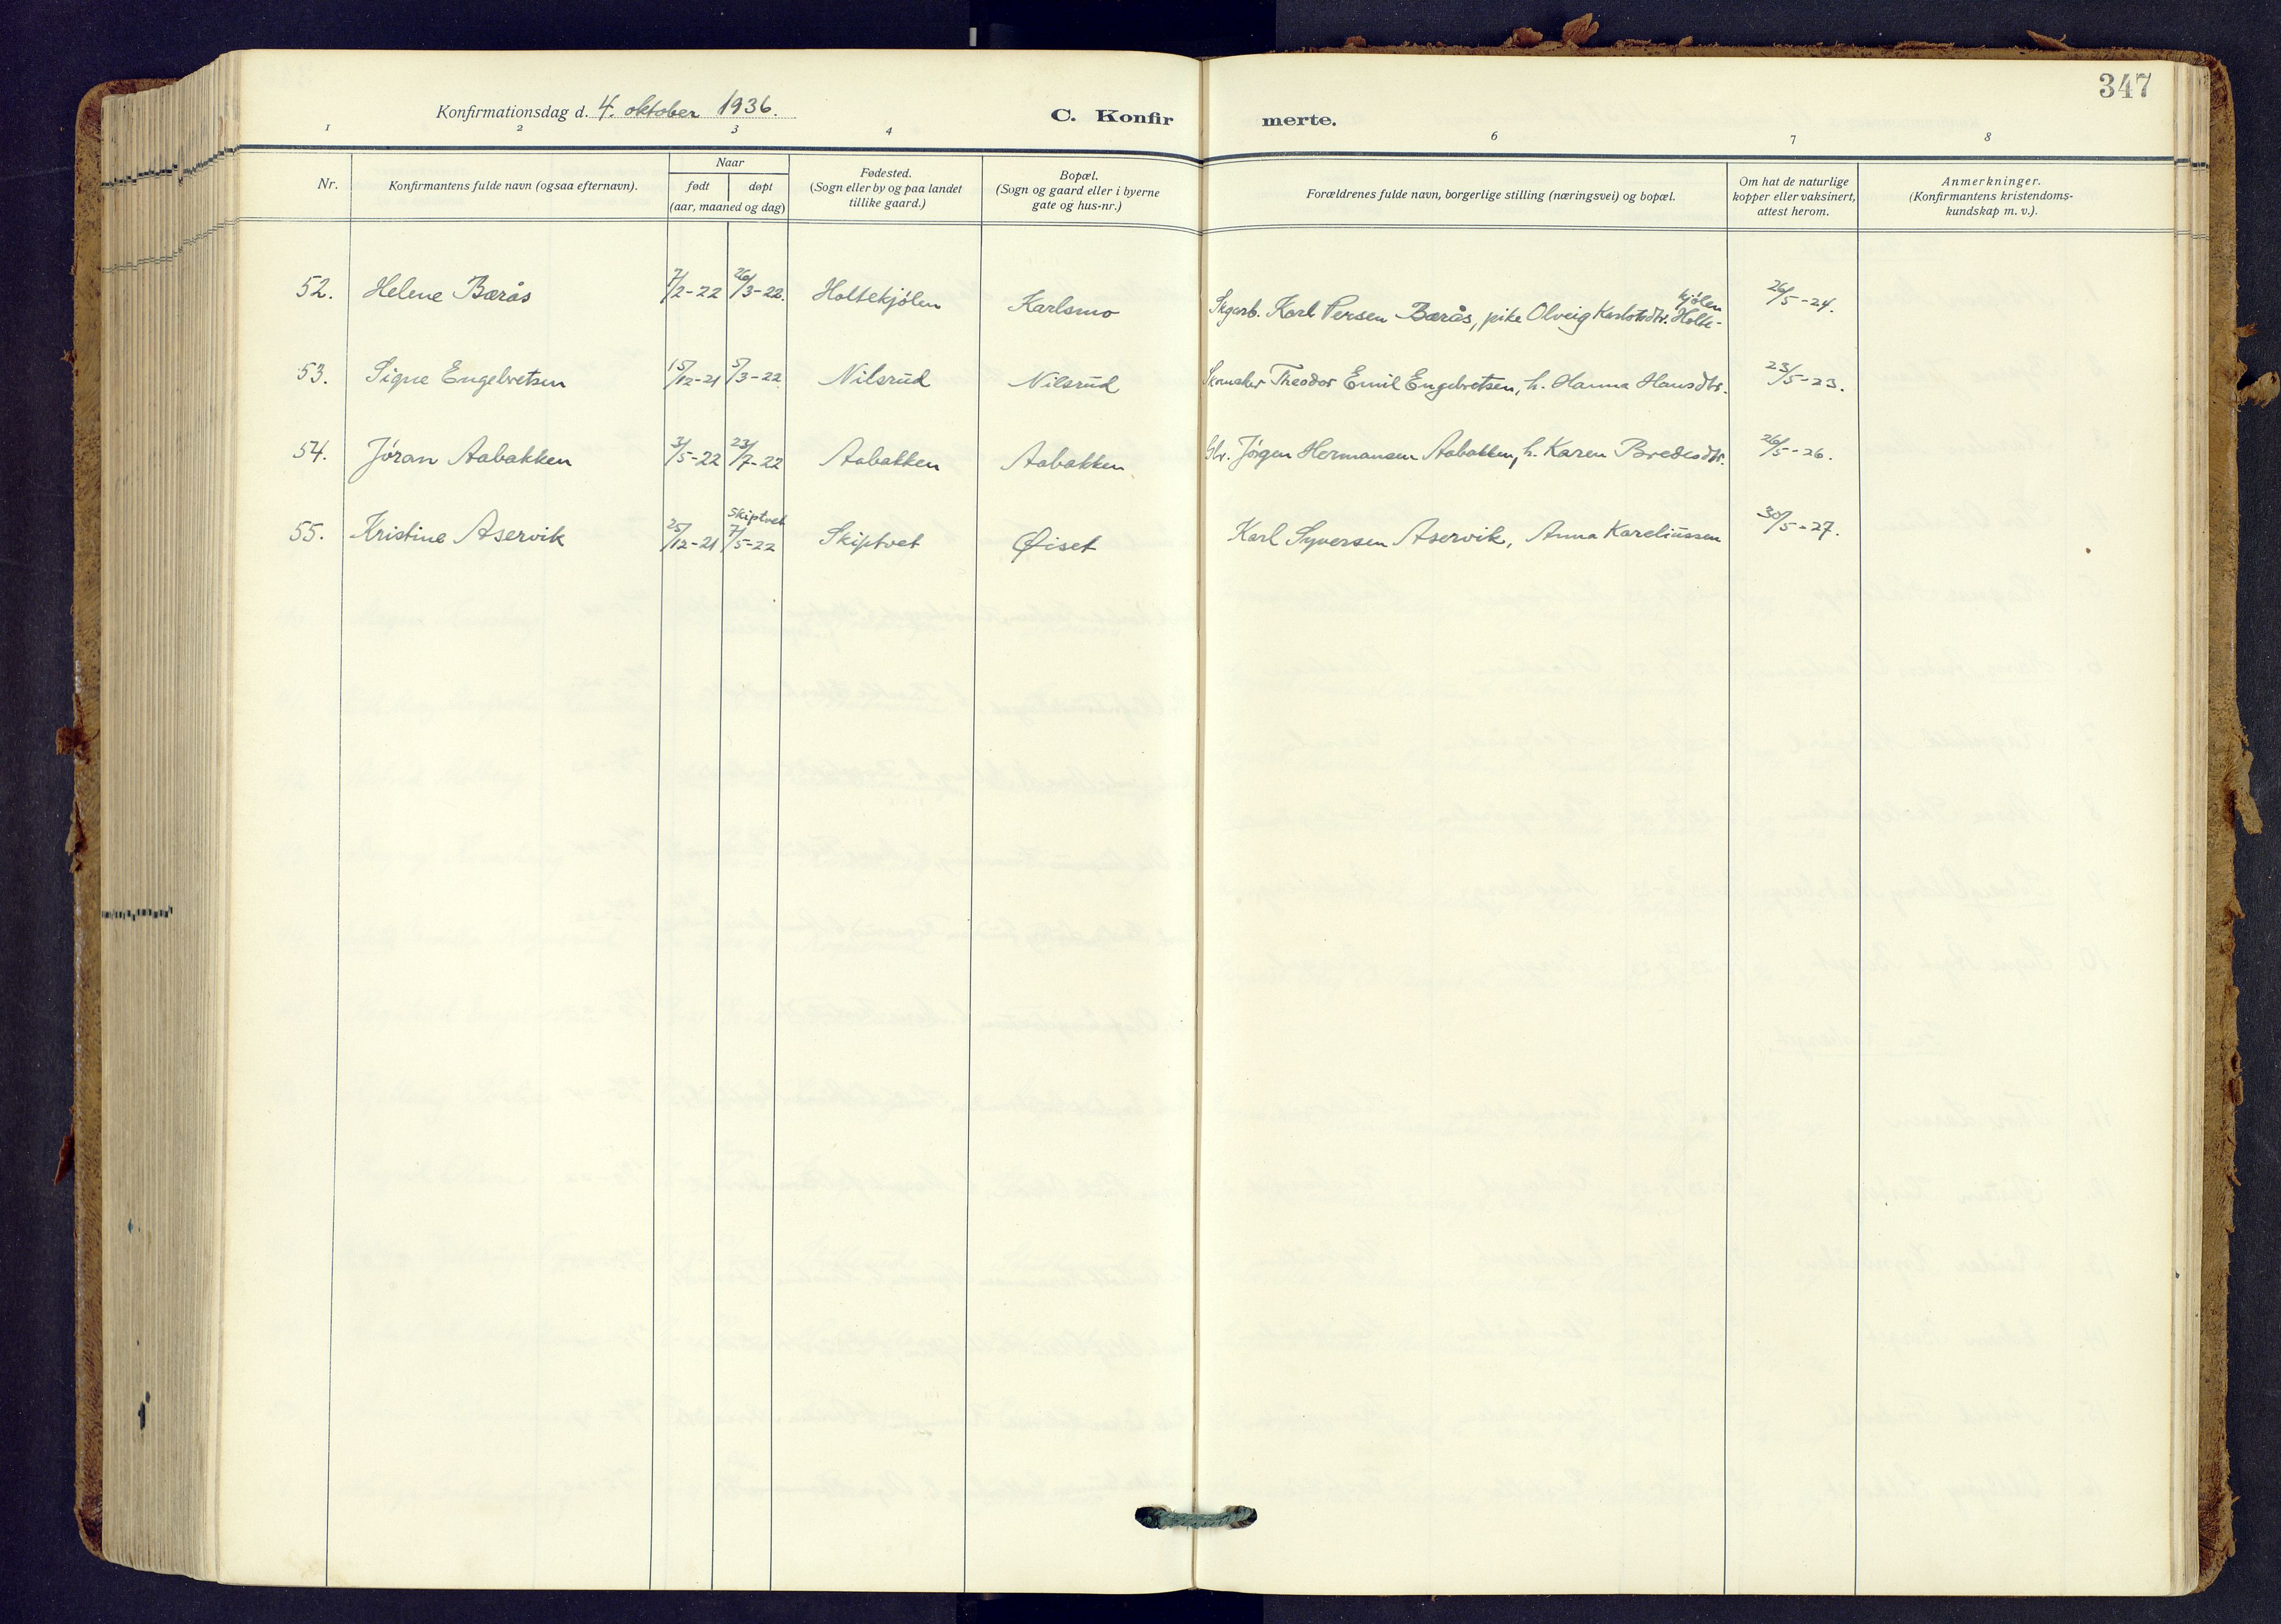 347
Konfirmationsdag d. 4. oktober 1936.
C. Konfirmerte.
1 2 3 4 6 7 8
Nr.
Konfirmantens fulde navn (ogsaa efternavn).
Naar
født døpt
(aar, maaned og dag)
Fødested.
(Sogn eller by og paa landet
tillike gaard.)
Bopæl.
(Sogn og gaard eller i byerne
gate og hus-nr.)
Forældrenes fulde navn, borgerlige stilling (næringsvei) og bopæl.
Om hat de naturlige
kopper eller vaksinert,
attest herom.
Anmerkninger.
(Konfirmantens kristendoms-
kundskap m. v.).
52. Helene Bærås 7/2-22 26/3-22. Holtekjølen Karlsmo Skgarb. Karl Persen Bærås, pike Olveig Karlotsdtr. Holte-
kjølen
26/5-24.
53. Signe Engebretsen 15/12-21 5/3-22 Nilsrud Nilsrud Theodor Emil Engebretsen, h. Hanna Hansdtr. 23/5-23.
54. Jøran Aabakken 3/5-22 23/7-22 Aabakken Aabakken Jørgen Hermansen Aabakken, h. Karen Bredesdtr. 26/5-26.
55. Kristine Aservik 25/12-21 Skiptvet
7/5-22 Skiptvet Øiset Karl Syversen Aservik, Anna Kareliussen 30/5-27.